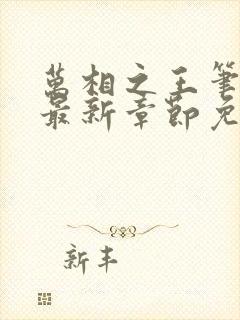 萬相之王筆
最新章節免
新丰